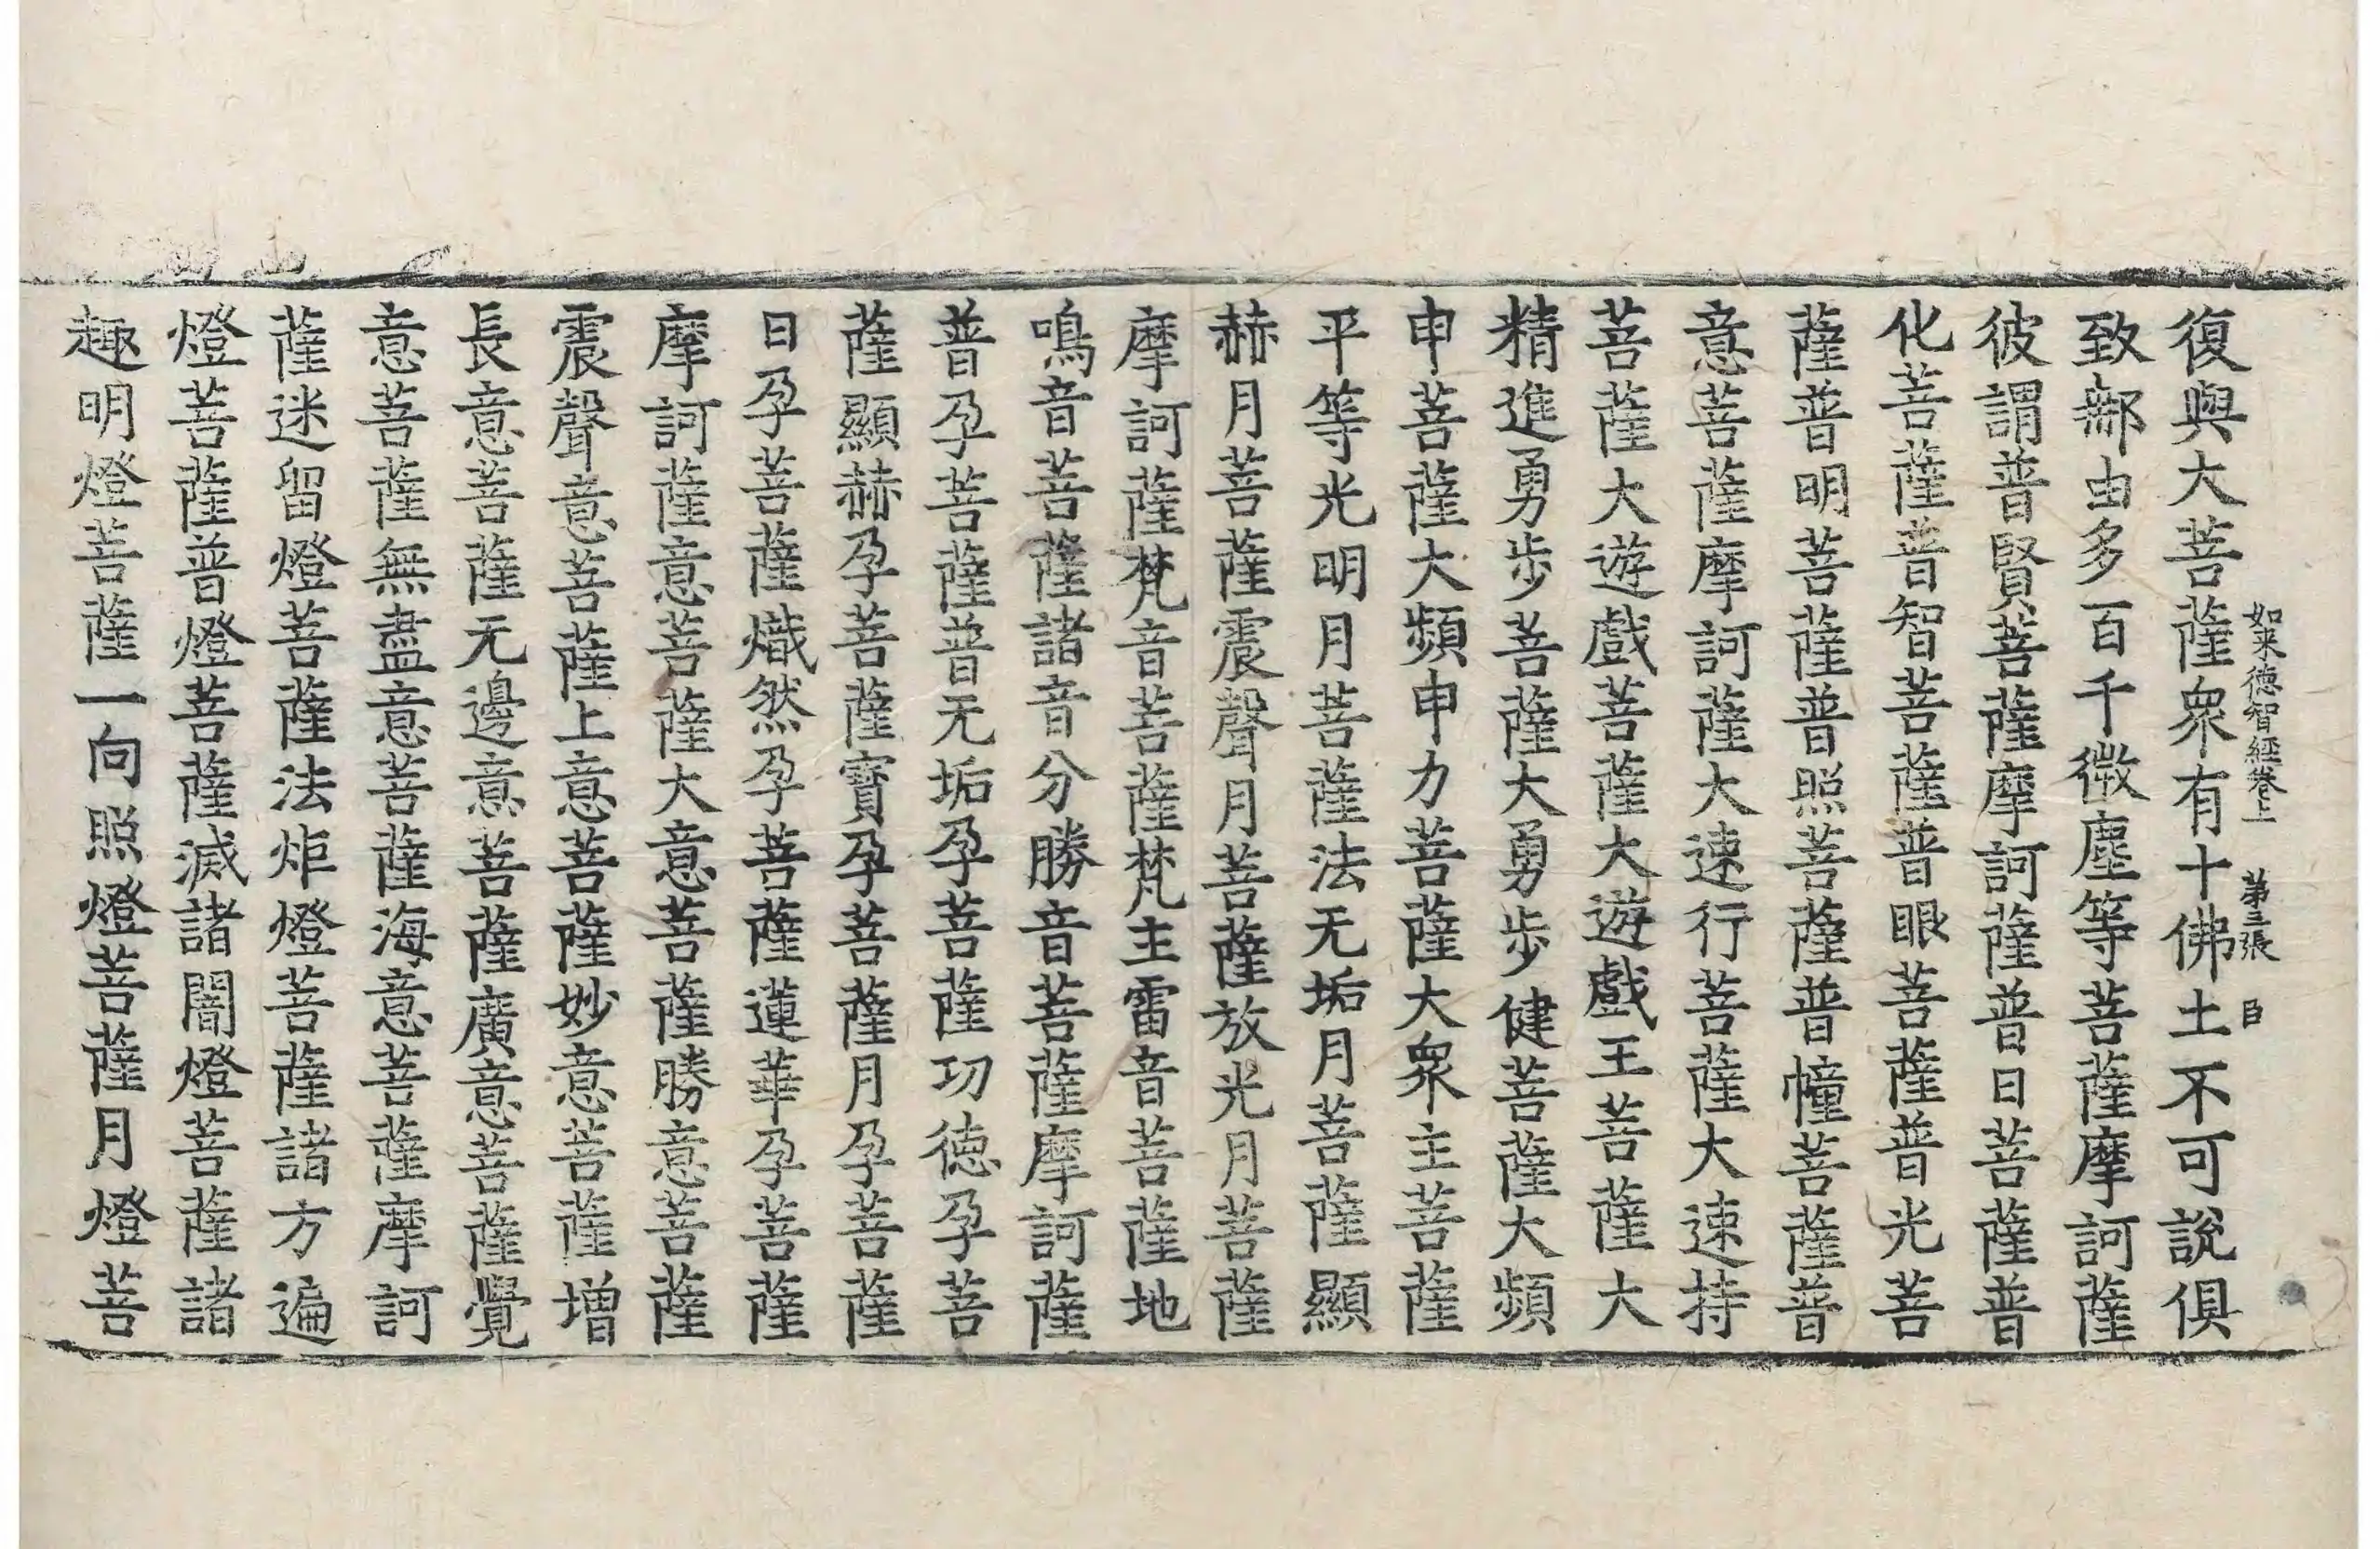 如来德智經卷上　第三張　臣
復與大菩薩衆有十佛土不可說俱
致鄔由多百千微塵等菩薩摩訶薩
彼謂普賢菩薩摩訶薩普日菩薩普
化菩薩普智菩薩普眼菩薩普光菩
薩普明菩薩普照菩薩普幢菩薩普
意菩薩摩訶薩大速行菩薩大速持
菩薩大遊戲菩薩大遊戲王菩薩大
精進勇步菩薩大勇步健菩薩大頻
申菩薩大頻申力菩薩大衆主菩薩
平等光明月菩薩法无垢月菩薩顯
赫月菩薩震聲月菩薩放光月菩薩
摩訶薩梵音菩薩梵主雷音菩薩地
鳴音菩薩諸音分勝音菩薩摩訶薩
普孕菩薩普无垢孕菩薩功德孕菩
薩顯赫孕菩薩寶孕菩薩月孕菩薩
日孕菩薩熾然孕菩薩蓮華孕菩薩
摩訶薩意菩薩大意菩薩勝意菩薩
震聲意菩薩上意菩薩妙意菩薩增
長意菩薩无邊意菩薩廣意菩薩覺
意菩薩無盡意菩薩海意菩薩摩訶
薩迷留燈菩薩法炬燈菩薩諸方遍
燈菩薩普燈菩薩滅諸闇燈菩薩諸
趣明燈菩薩一向照燈菩薩月燈菩